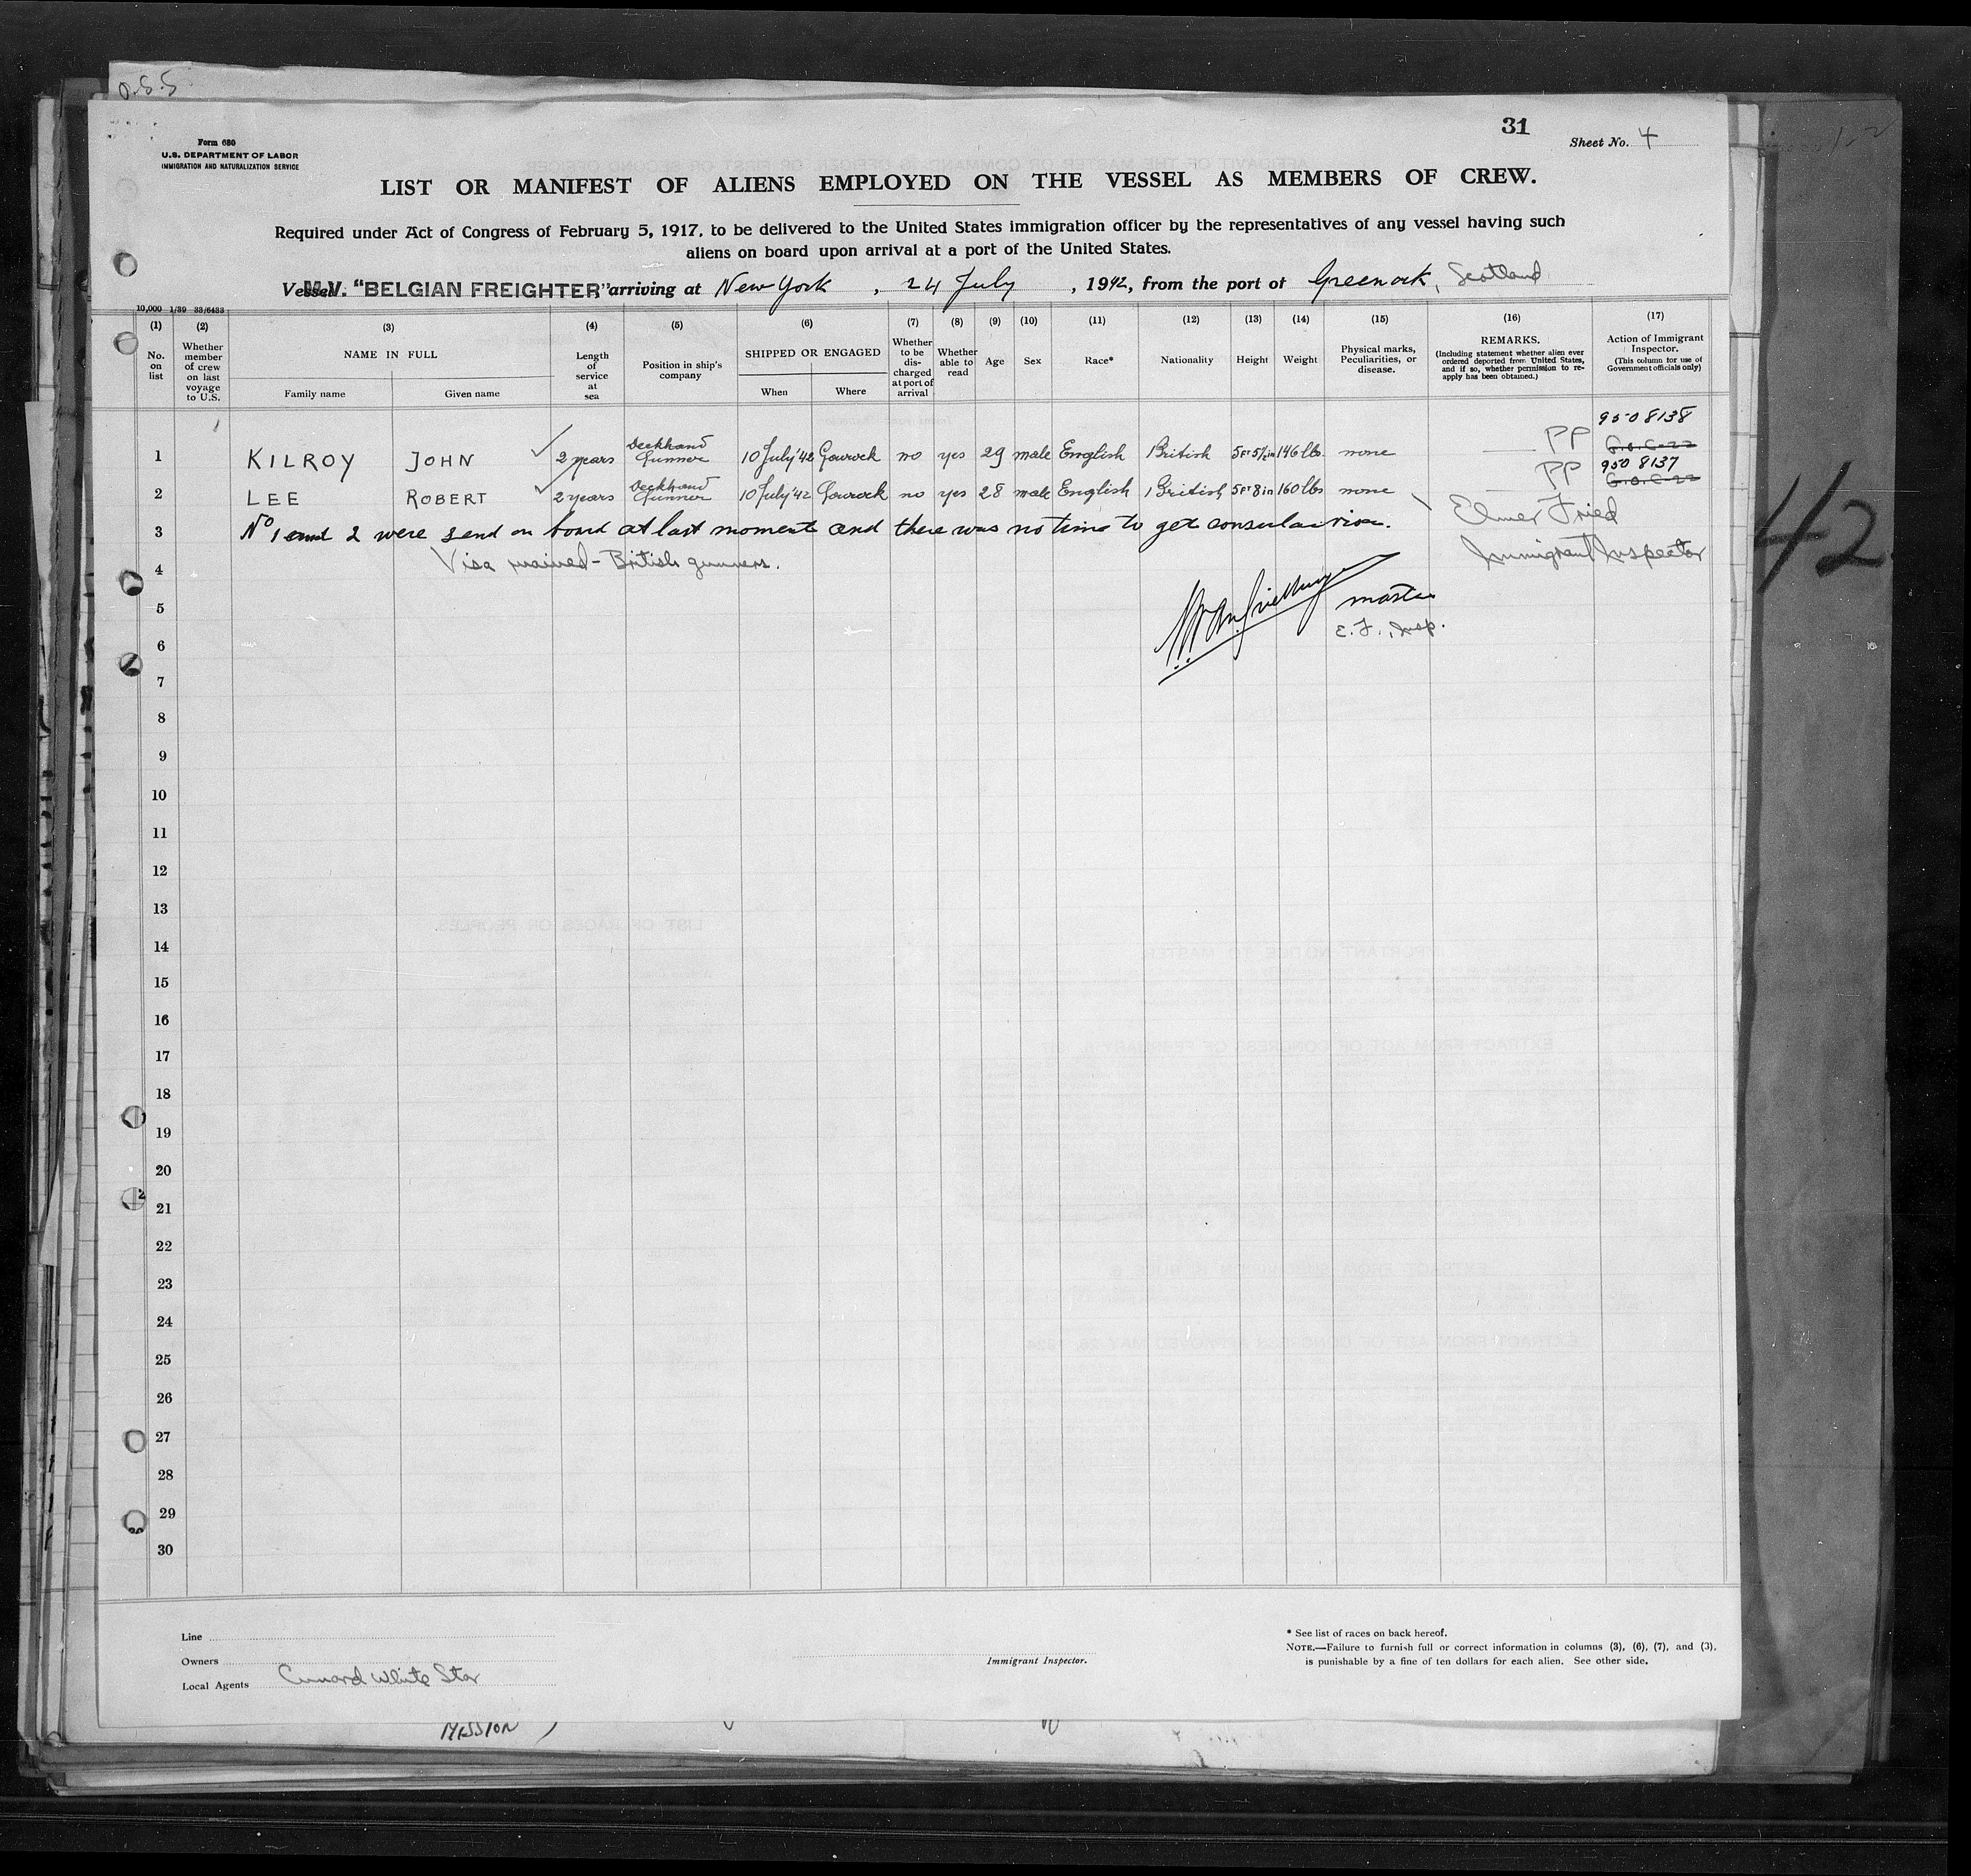 O.S.S
31
Sheet No. 4
Form 680
U.S. DEPARTMENT OF LABOR
IMMIGRATION AND NATURALIZATION SERVICE
LIST OR MANIFEST OF ALIENS EMPLOYED ON THE VESSEL AS MEMBERS OF CREW.
Required under Act of Congress of February 5, 1917, to be delivered to the United States immigration officer by the representatives of any vessel having such
aliens on board upon arrival at a port of the United States.
Vessel M.V. "BELGIAN FREIGHTER" arriving at New York, 24 July, 1942, from the port of Greenock, Scotland
10,000 1/39 33/6433
(1) (2) (3) (4) (5) (6) (7) (8) (9) (10) (11) (12) (13) (14) (15) (16) (17)
No. on list
Whether member of crew on last voyage to U.S.
NAME IN FULL
Family name Given name
Length of service at sea
Position in ship's company
SHIPPED OR ENGAGED
When Where
Whether to be dis-charged at port of arrival
Whether able to read
Age
Sex
Race*
Nationality
Height
Weight
Physical marks, Peculiarities, or disease.
REMARKS.
(Including statement whether alien ever ordered deported from United States, and if so, whether permission to re-apply has been obtained.)
Action of Immigrant Inspector.
(This column for use of Government officials only)
950 8138
1 KILROY JOHN 2 years Deckhand Gunner 10 July '42 Gourock no yes 29 male English British 5 Ft 5½ in 146 lbs. none PP G.O.C-22
950 8137
2 LEE ROBERT 2 years Deckhand Gunner 10 July '42 Gourock no yes 28 male English British 5 Ft 8 in 160 lbs none PP G.O.C-22
3 No 1 and 2 were send on board at last moment and there was no time to get consular vise. Elmer Fried
4 Visa waived - British gunners. Immigrant Inspector
5 master
6 E. F., Insp.
7
8
9
10
11
12
13
14
15
16
17
18
19
20
21
22
23
24
25
26
27
28
29
30
42
Line
Owners
Local Agents Cunard White Star
Immigrant Inspector.
* See list of races on back hereof.
NOTE.—Failure to furnish full or correct information in columns (3), (6), (7), and (3),
is punishable by a fine of ten dollars for each alien. See other side.
MISSION